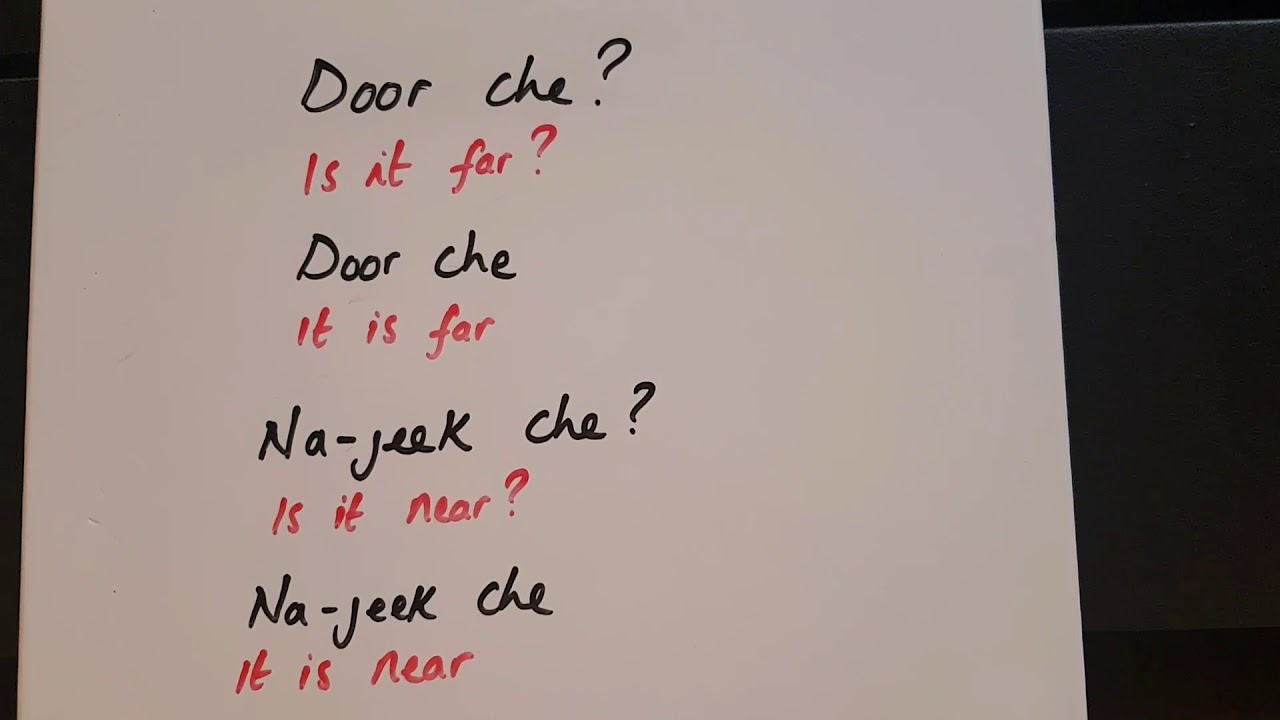 Door che?
Is it far?
Door che
It is far
Na-jeek che?
Is it near?
Na-jeek che
It is near